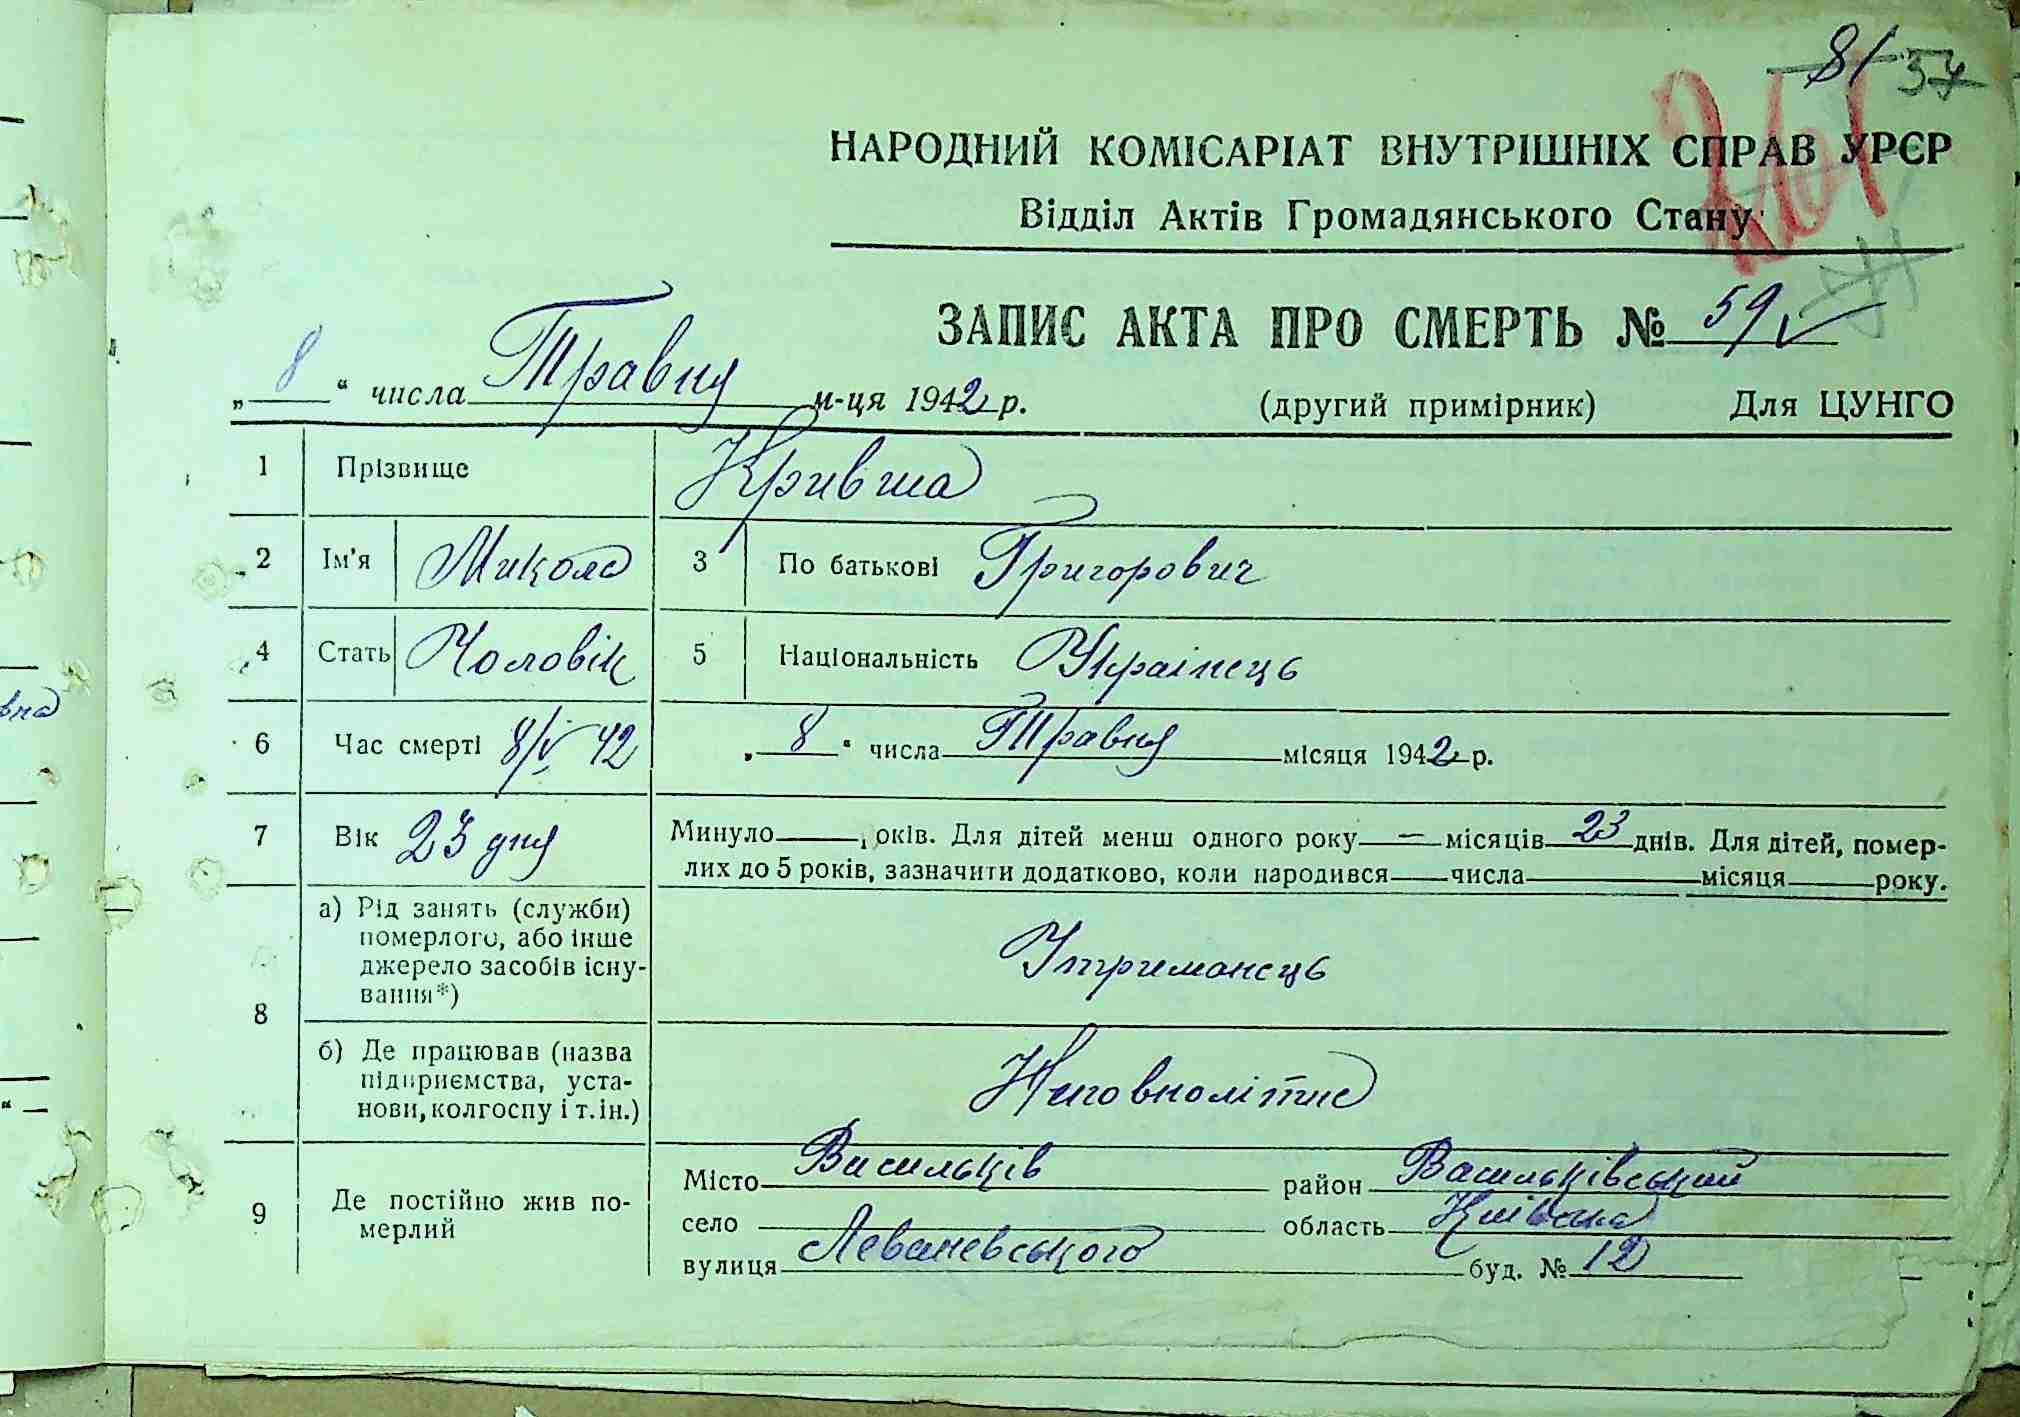 81 57
261
НАРОДНИЙ КОМІСАРІАТ ВНУТРІШНІХ СПРАВ УРСР
Відділ Актів Громадянського Стану
ЗАПИС АКТА ПРО СМЕРТЬ № 59
„ 8 “ числа Травня м-ця 1942 р. (другий примірник) Для ЦУНГО
1 Прізвище Кривша
2 Ім'я Микола 3 По батькові Григорович
4 Стать Чоловік 5 Національність Українець
6 Час смерті 8/V 42 „ 8 “ числа Травня місяця 1942 р.
7 Вік 23 дня Минуло років. Для дітей менш одного року — місяців 23 днів. Для дітей, помер-
лих до 5 років, зазначити додатково, коли народився числа місяця року.
8 а) Рід занять (служби)
померлого, або інше
джерело засобів існу-
вання*)
Утриманець
б) Де працював (назва
підприємства, уста-
нови, колгоспу і т. ін.)
Неповнолітнє
9 Де постійно жив по-
мерлий
Місто Васильків район Васильківський
село область Київська
вулиця Леваневського буд. № 12
вна